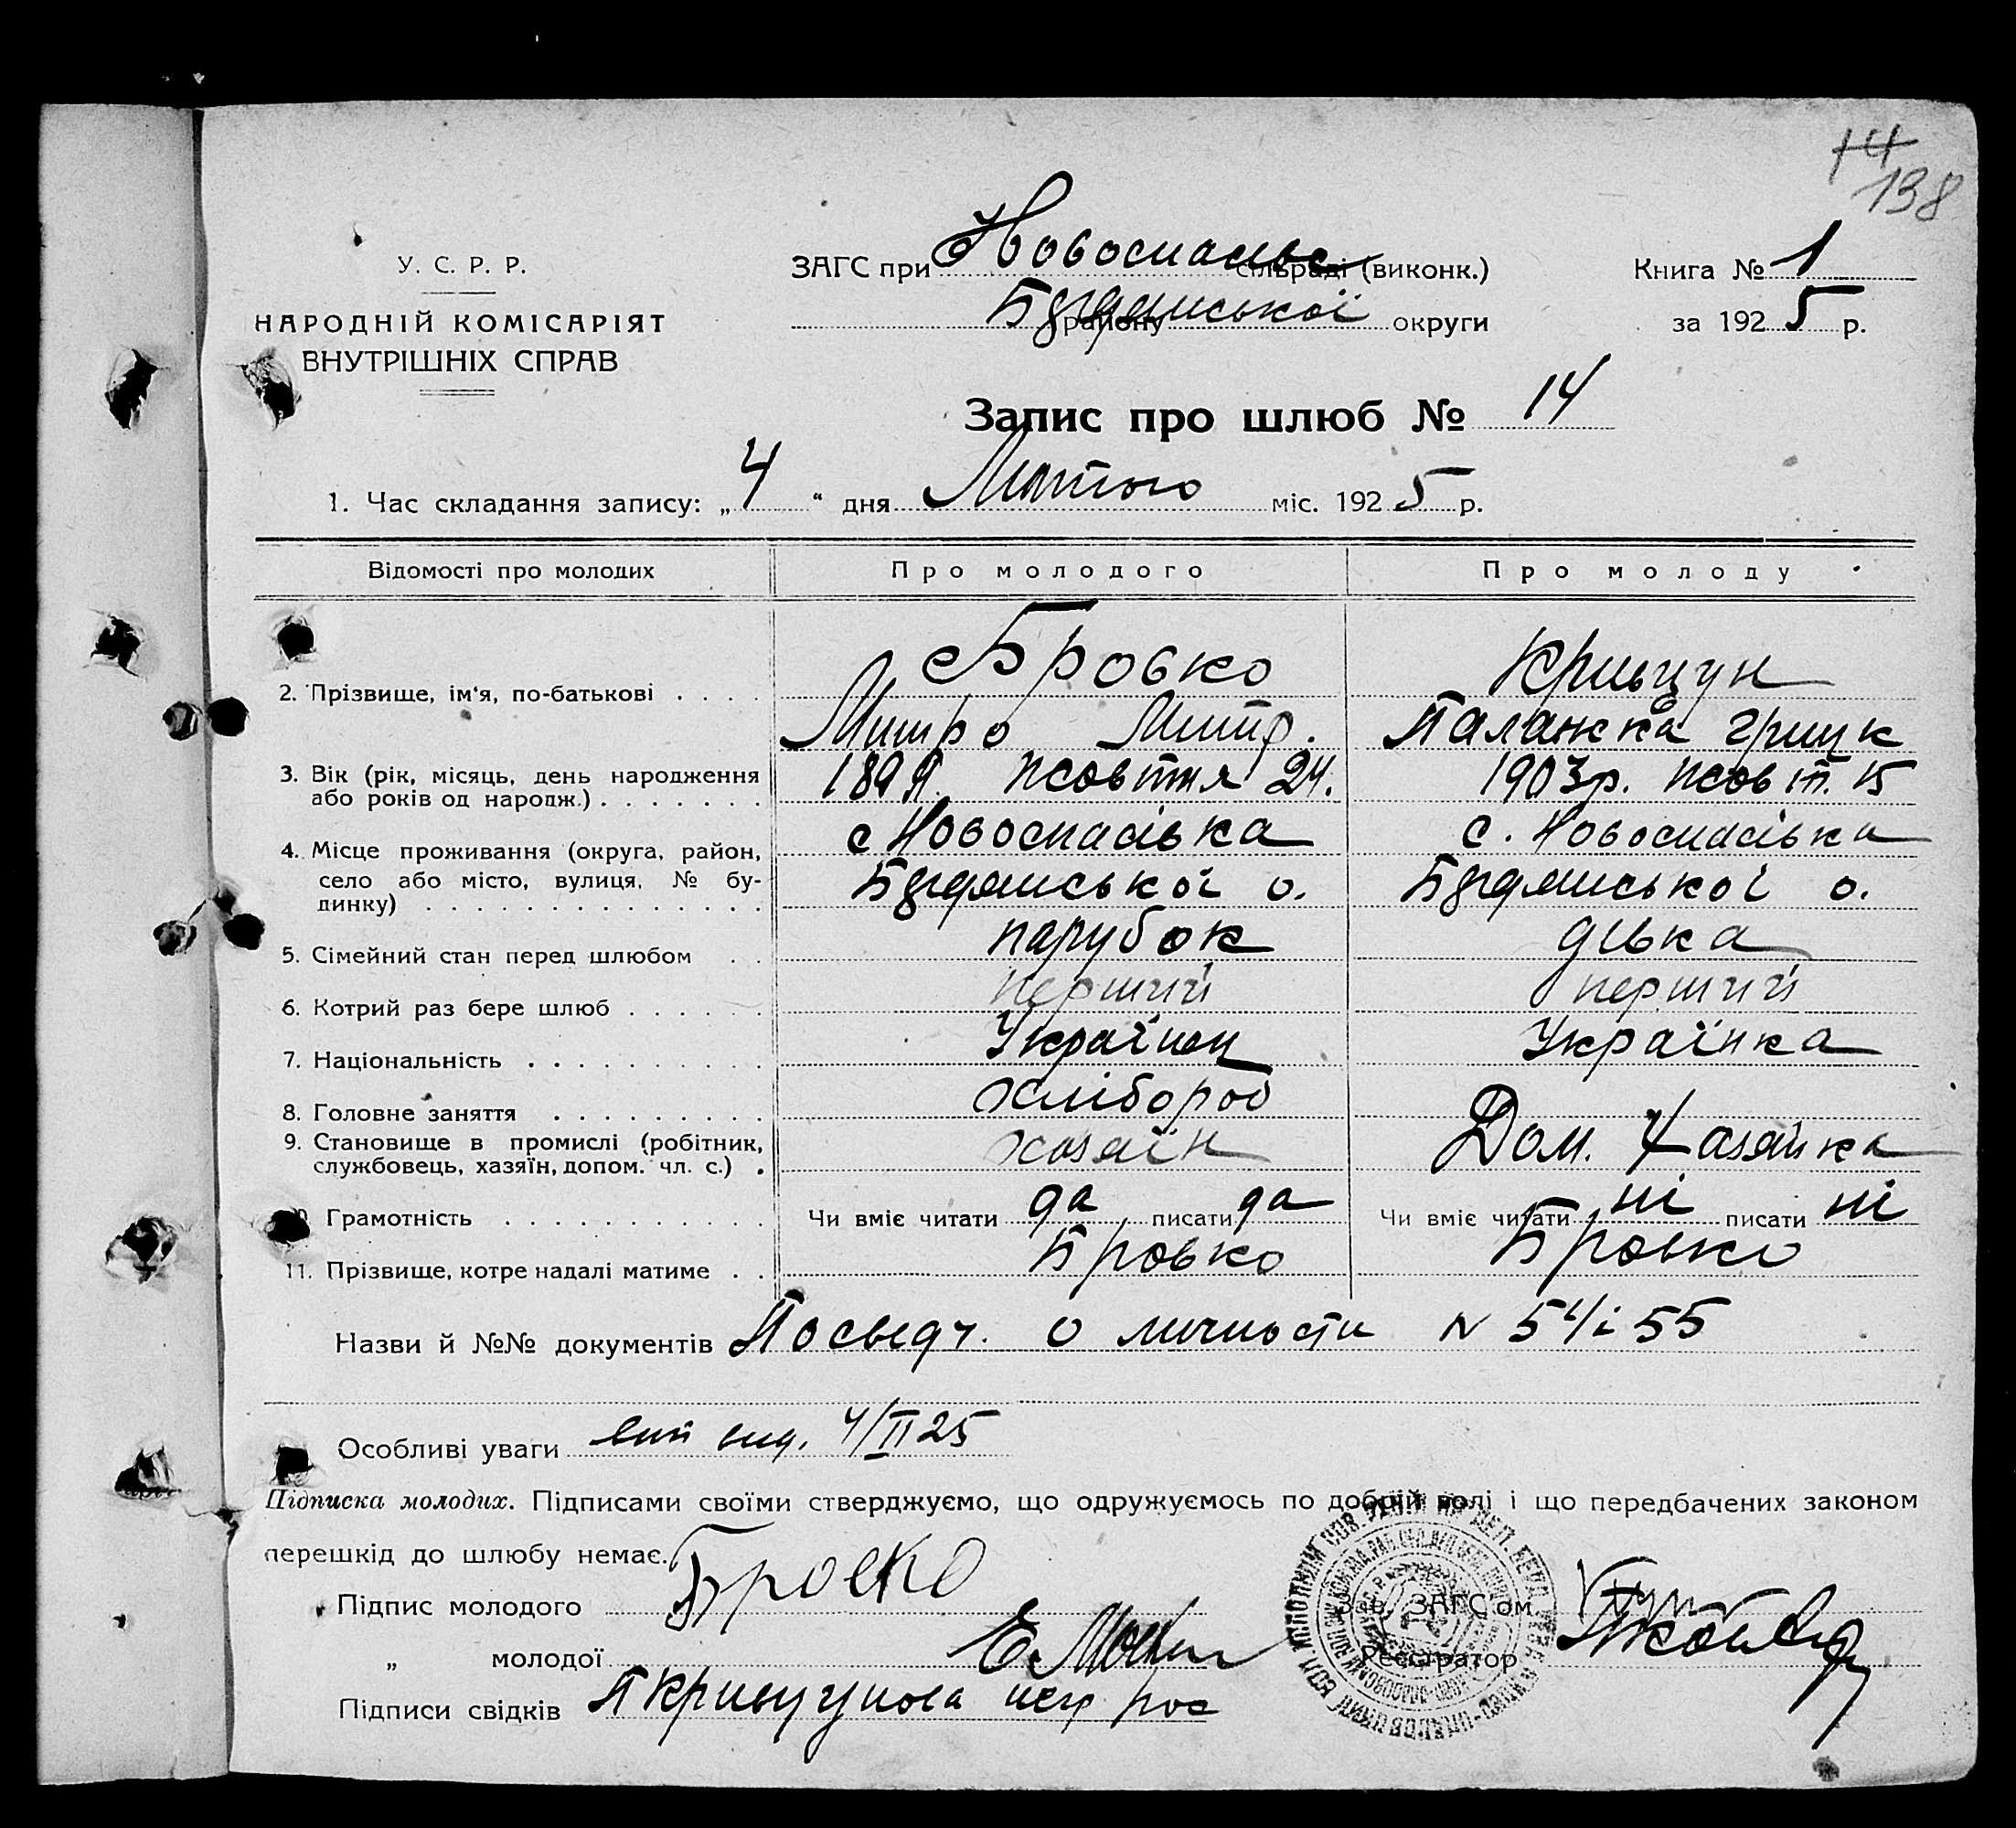 14
138
У. С. Р. Р.
НАРОДНІЙ КОМІСАРІЯТ
ВНУТРІШНІХ СПРАВ
ЗАГС при Новоспасівс сільраді (виконк.)
району Бердянської округи
Книга № 1
за 1925 р.
Запис про шлюб № 14
1. Час складання запису: „4“ дня Лютого міс. 1925 р.
Відомості про молодих Про молодого Про молоду
2. Прізвище, ім'я, по-батькові . . . . Бровко
Митро Митр. Палажка Грицк
3. Вік (рік, місяць, день народження або років од народж.) . . . . . . . жовтня 24. 1903р. жовт. 15
4. Місце проживання (округа, район, село або місто, вулиця, № будинку) . . . . . . . . . . . . . . с Новоспасівка с. Новоспасівка
Бердянської о. Бердянської о.
5. Сімейний стан перед шлюбом . . парубок дівка
6. Котрий раз бере шлюб . . . . . . перший перший
7. Національність . . . . . . . . . . Українец Українка
8. Головне заняття . . . . . . . . . хлібороб
9. Становище в промислі (робітник, службовець, хазяїн, допом. чл. с.) . хозяїн Дом. Хазяйка
Грамотність . . . . . . . . . . . Чи вміє читати да писати да Чи вміє читати ні писати ні
11. Прізвище, котре надалі матиме . . Бровко Бровко
Назви й №№ документів Посведч. о личности N
Особливі уваги 4/II 25
Підписка молодих. Підписами своїми стверджуємо, що одружуємось по добрій волі і що передбачених законом
перешкід до шлюбу немає.
Підпис молодого Бровко
Зав. ЗАГС'ом
„ молодої
Реєстратор
Підписи свідків